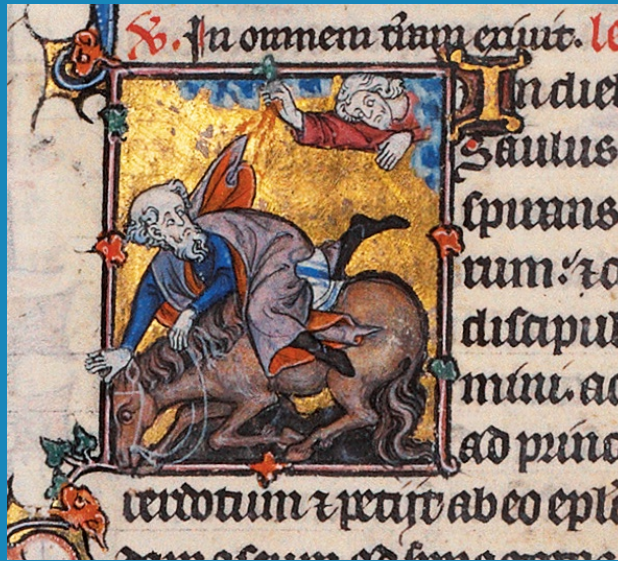 ℣. In omnem t̃ram exiuit. le
In dieb
Saulus
spirans
rum: ⁊ c
discipul
mini. ac
ad princ
cerdotium ⁊ petijt ab eo epl̃